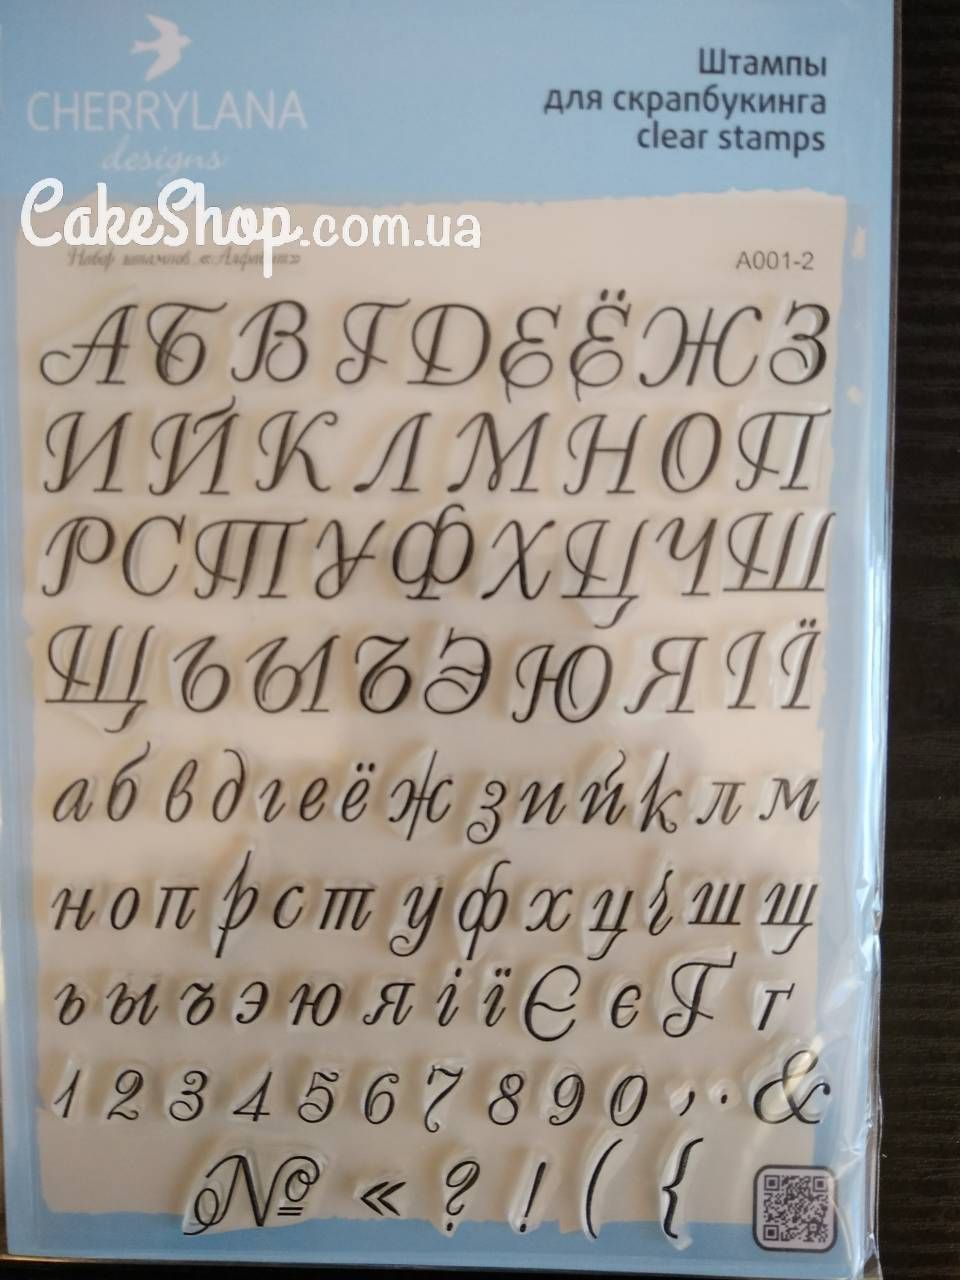 CHERRYLANA
designs
Штампы
для скрапбукинга
clear stamps
CakeShop.com.ua
Набор штампов «Алфавит»
A001-2
А Б В Г Д Е Ё Ж З
И Й К Л М Н О П
Р С Т У Ф Х Ц Ч Ш
Щ Ъ Ы Ъ Э Ю Я І Ї
а б в д г е ё ж з и й к л м
н о п р с т у ф х ц ч ш щ
ь ы ъ э ю я і ї Є є Ґ ґ
1 2 3 4 5 6 7 8 9 0 , . &
№ « ? ! ( {